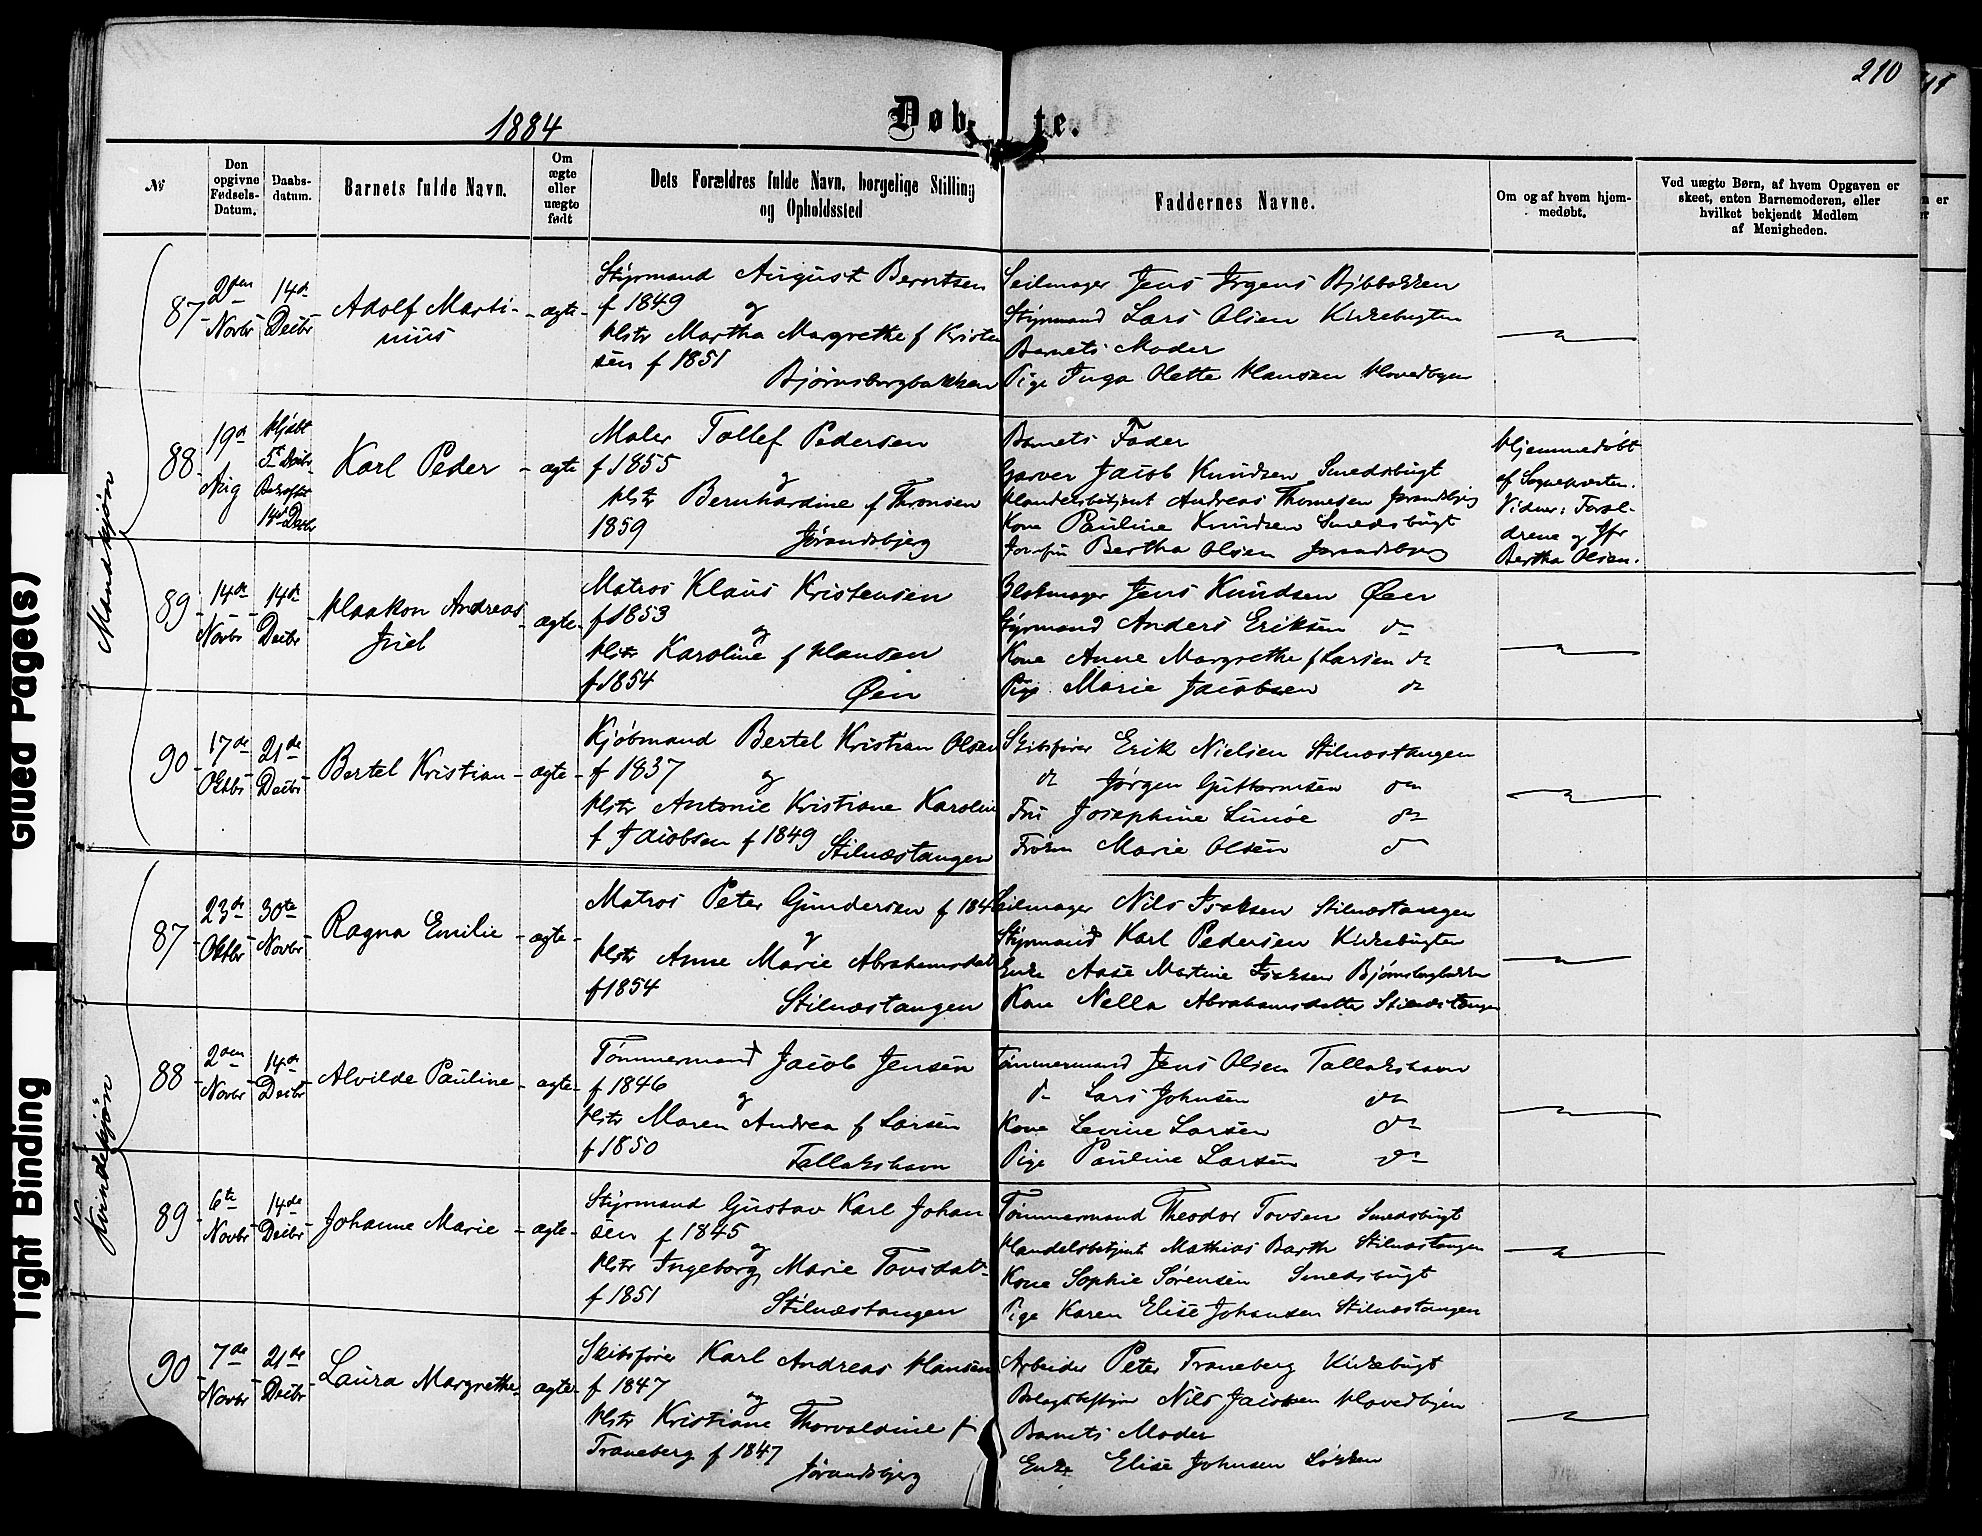 210
1884
Døbte.
№
Den opgivne Fødsels-Datum.
Daabs-datum.
Barnets fulde Navn.
Om ægte eller uægte født
Dets Forældres fulde Navn, borgelige Stilling og Opholdssted
Faddernes Navne.
Om og af hvem hjem-medøbt.
Ved uægte Børn, af hvem Opgaven er skeet, enten Barnemoderen, eller hvilket bekjendt Medlem af Menigheden.
Mandskjøn
87 2den Novbr 14de Decbr Adolf Marti-nius ægte
Styrmand August Berntsen
f 1849 og
Hstr Martha Margrethe f Kristen
sen f 1851
Bjørnsborgbakken
Seilmager Jens Jrgens
Styrmand Lars Olsen Kirkebugten
Barnets Moder
Pige Inga Olette Hansen Hovedbyen
88 19de Aug Hjdbt 5te Decbr 14de Decbr Karl Peder ægte
Maler Tollef Pedersen
f 1855 og
Hstr Bernhardine f Thomsen
1859 Jørandsbjerg
Barnets Fader
Garver Jacob Knudsen Smedsbugt
Handelsbetjent Andreas Thomesen Jørandsbjerg
Kone Pauline Knudsen Smedsbugt
Jomfru Bertha Olsen Jørandsbjerg
Hjemmedøbt
af Sognepræsten.
Vidner: Foræl-
drene og Jfr
Bertha Olsen.
89 14de Novbr 14de Decbr Haakon Andreas Juel ægte
Matros Klaus Kristensen
f 1853 og
Hstr Karoline f Hansen
f 1854 Øen
Blokmager Jens Knudsen Øen
Styrmand Anders Eriksen do
Kone Anne Margrethe f Larsen do
Pige Marie Jacobsen do
90 17de Oktbr 21de Decbr Bertel Kristian ægte
Kjøbmand Bertel Kristian Olsen
f 1837 og
Hstr Antonie Kristiane Karoline
f Jacobsen f 1849 Stilnæstangen
Skibsfører Erik Nielsen Stilnæstangen
do Jørgen Guttormsen do
Fru Josephine Lunøe do
Frøken Marie Olsen do
Kvindekjøn
87 23de Oktbr 30te Novbr Ragna Emilie ægte
Matros Peter Gundersen f 184
og
Hstr Anne Marie Abrahamsdat
f 1854 Stilnæstangen
Seilmager Nils Isaksen Stilnæstangen
Styrmand Karl Pedersen Kirkebugten
Enke Aase Martine Isaksen Bjørnsborgbakken
Kone Nella Abrahamsdatter Stilnæstangen
88 2den Novbr 14de Decbr Alvilde Pauline ægte
Tømmermand Jacob Jensen
f 1846 og
Hstr Maren Andrea f Larsen
f 1850 Tallakshavn
Tømmermand Jens Olsen Tallakshavn
do Lars Johnsen do
Kone Levine Larsen do
Pige Pauline Larsen do
89 6te Novbr 14de Decbr Johanne Marie ægte
Styrmand Gustav Karl Johan
sen f 1845 og
Hstr Ingeborg Marie Tovsdat
f 1851 Stilnæstangen
Tømmermand Theodor Tovsen Smedsbugt
Handelsbetjent Mathias Barth Stilnæstangen
Kone Sophie Sørensen Smedsbugt
Pige Karen Elise Johansen Stilnæstangen
90 7de Novbr 21de Decbr Laura Margrethe ægte
Skibsfører Karl Andreas Hansen
f 1847 og
Hstr Kristiane Thorvaldine f
Traneberg f 1847
Jørandsbjerg
Arbeider Peter Traneberg Kirkebugt
Nils Jacobsen Hovedbyen
Barnets Moder
Enke Elise Johnsen Løkken
Glued Page(s)
Tight Binding